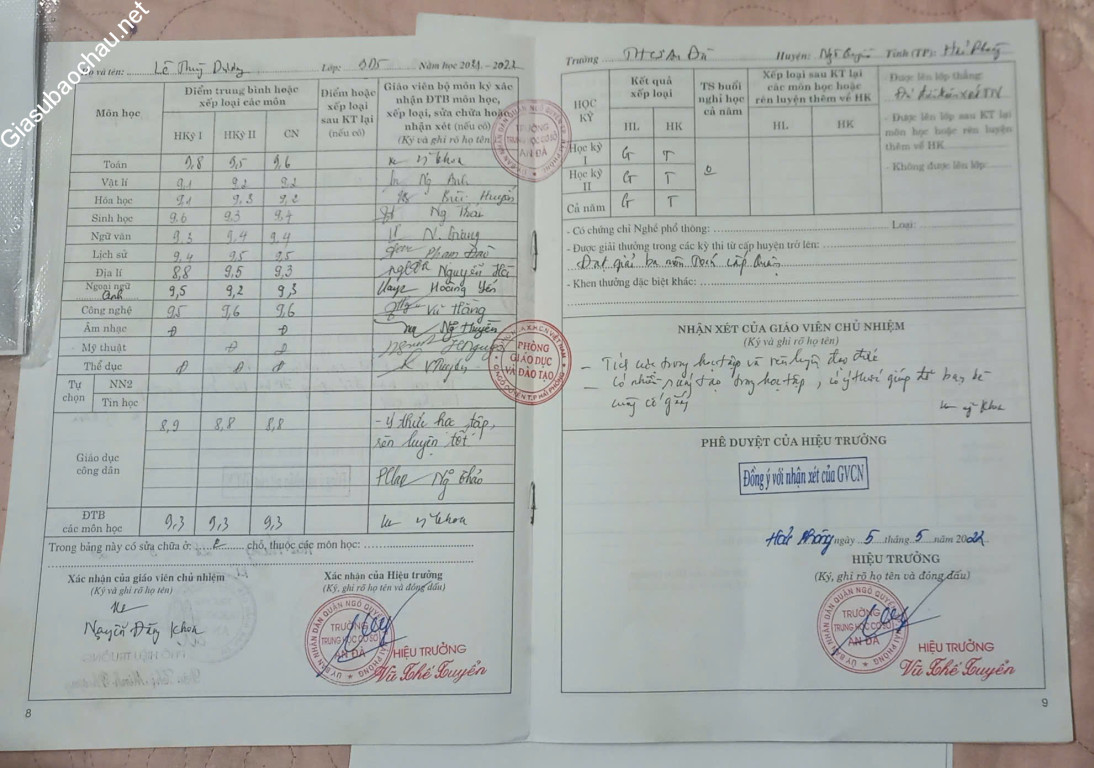 Giasubaochau.net
Họ và tên: Lê Thuỳ Dương Lớp: 9D5 Năm học 2021 - 2022
Môn học
Điểm trung bình hoặc xếp loại các môn
HKỳ I HKỳ II CN
Điểm hoặc xếp loại sau KT lại (nếu có)
Giáo viên bộ môn ký xác nhận ĐTB môn học, xếp loại, sửa chữa hoặc nhận xét (nếu có)
(Ký và ghi rõ họ tên)
Toán 9,8 9,5 9,6
Vật lí 9,1 9,2 9,2 Ng Anh
Hóa học 9,1 9,3 9,2
Sinh học 9,6 9,3 9,4
Ngữ văn 9,3 9,4 9,4
Lịch sử 9,4 9,5 9,5
Địa lí 8,8 9,5 9,3
Ngoại ngữ Anh 9,5 9,2 9,3 Hoàng Yến
Công nghệ 9,5 9,6 9,6 Vũ Hằng
Âm nhạc Đ Đ Ng Huyền
Mỹ thuật Đ Đ
Thể dục Đ Đ Đ
Tự chọn
NN2
Tin học
Giáo dục công dân 8,9 8,8 8,8
- Ý thức học tập,
rèn luyện tốt
Ng Thảo
ĐTB các môn học 9,3 9,3 9,3
Trong bảng này có sửa chữa ở: chỗ, thuộc các môn học:
Xác nhận của giáo viên chủ nhiệm
(Ký và ghi rõ họ tên)
Nguyễn Đăng Khoa
Xác nhận của Hiệu trưởng
(Ký, ghi rõ họ tên và đóng dấu)
ỦY BAN NHÂN DÂN QUẬN NGÔ QUYỀN
TRƯỜNG
TRUNG HỌC CƠ SỞ
AN ĐÀ
HIỆU TRƯỞNG
Vũ Thế Tuyển
8
PHÒNG
GIÁO DỤC
VÀ ĐÀO TẠO
Trường THCS An Đà Huyện: Ngô Quyền Tỉnh (TP): Hải Phòng
HỌC KỲ
Kết quả xếp loại
HL HK
TS buổi nghỉ học cả năm
Xếp loại sau KT lại các môn học hoặc rèn luyện thêm về HK
HL HK
- Được lên lớp thẳng:
- Được lên lớp sau KT lại môn học hoặc rèn luyện thêm về HK
- Không được lên lớp:
Học kỳ I G T
Học kỳ II G T
Cả năm G T
0
- Có chứng chỉ Nghề phổ thông: Loại:
- Được giải thưởng trong các kỳ thi từ cấp huyện trở lên:
Đạt giải ba môn Toán cấp Quận
- Khen thưởng đặc biệt khác:
NHẬN XÉT CỦA GIÁO VIÊN CHỦ NHIỆM
(Ký và ghi rõ họ tên)
- Tích cực trong học tập và rèn luyện đạo đức
- Có nhiều sáng tạo trong học tập, có ý thức giúp đỡ bạn bè
cùng cố gắng
PHÊ DUYỆT CỦA HIỆU TRƯỞNG
Đồng ý với nhận xét của GVCN
Hải Phòng ngày 5 tháng 5 năm 2022
HIỆU TRƯỞNG
(Ký, ghi rõ họ tên và đóng dấu)
ỦY BAN NHÂN DÂN QUẬN NGÔ QUYỀN
TRƯỜNG
TRUNG HỌC CƠ SỞ
AN ĐÀ
HIỆU TRƯỞNG
Vũ Thế Tuyển
9